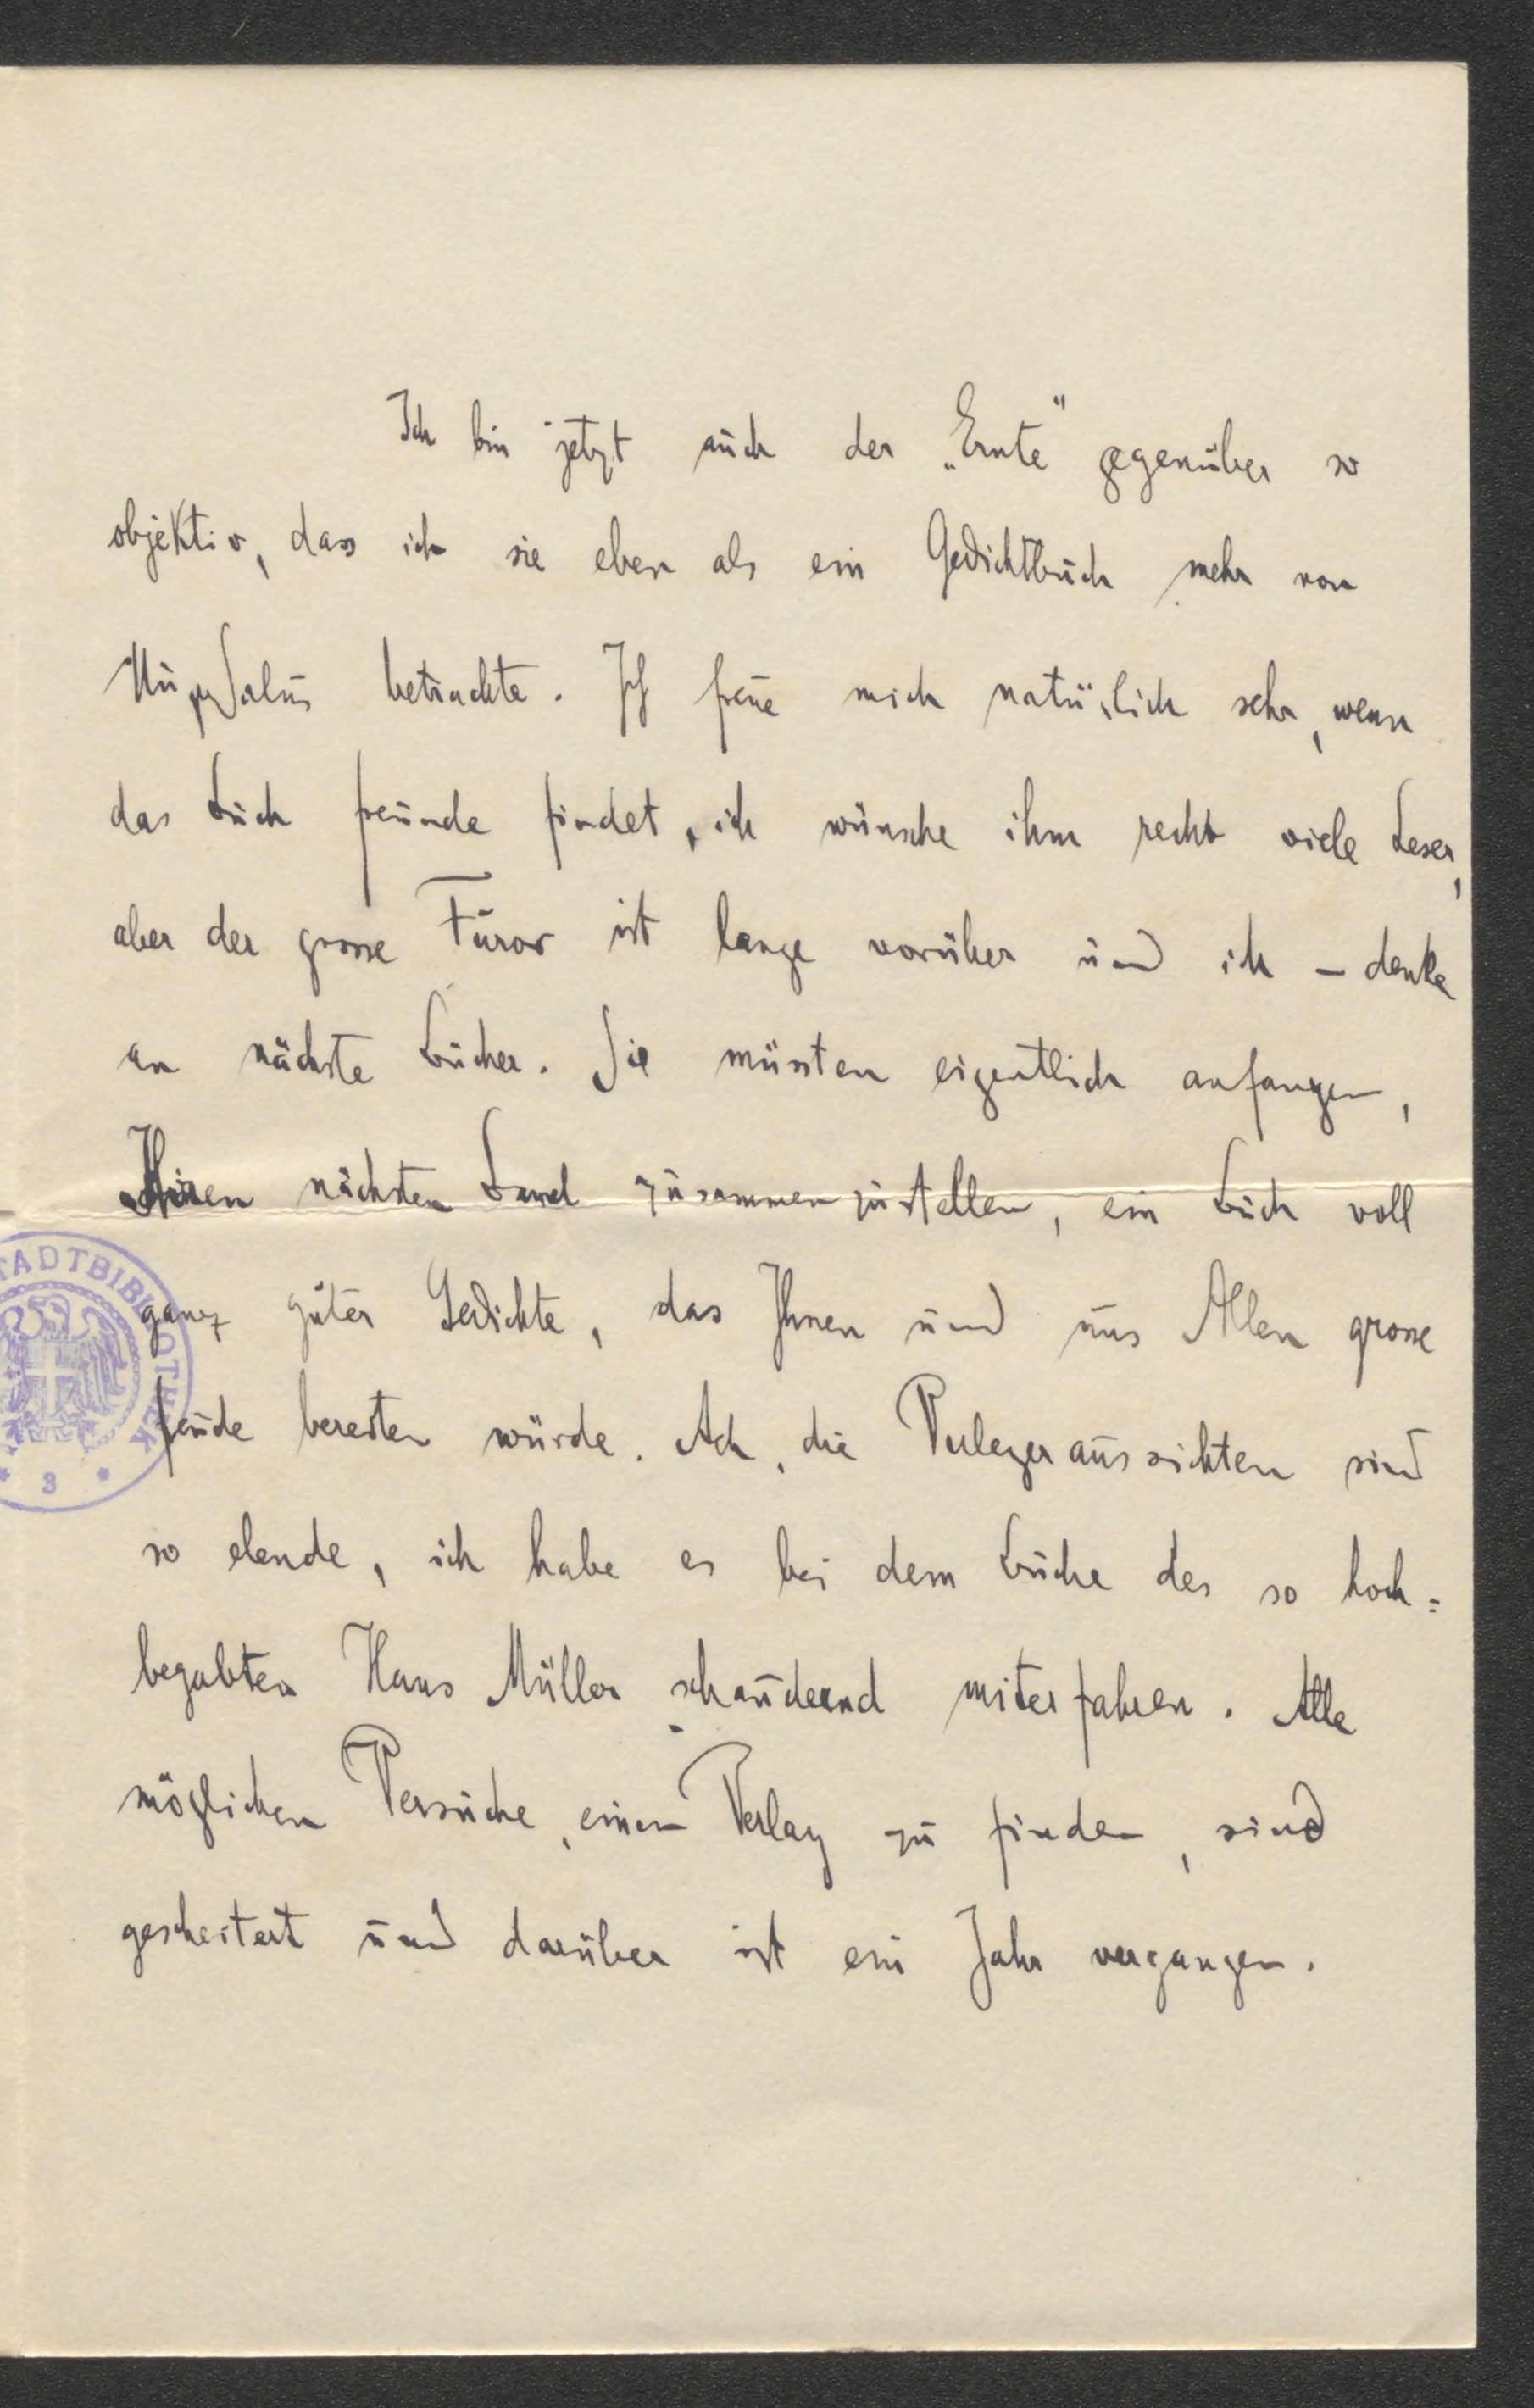 Ich bin jetzt auch der „Ernte" gegenüber so
objektiv, dass ich sie eben als ein Gedichtbuch mehr von
betrachte. Ich freue mich natürlich sehr, wenn
das Buch Freunde findet, ich wünsche ihm recht viele Leser,
aber der grosse Furor ist lange vorüber und ich – denke
an nächste Bücher. Sie müssten eigentlich anfangen,
Ihren nächsten Band zusammenzustellen, ein Buch voll
ganz guter Gedichte, das Ihnen und uns Allen grosse
Freude bereiten würde. Ach, die Verlegeraussichten sind
so elende, ich habe es bei dem Buche des so hoch=
begabten Hans Müller schaudernd miterfahren. Alle
möglichen Versuche, einen Verlag zu finden, sind
gescheitert und darüber ist ein Jahr vergangen.
STADTBIBLIOTHEK
* 3 *